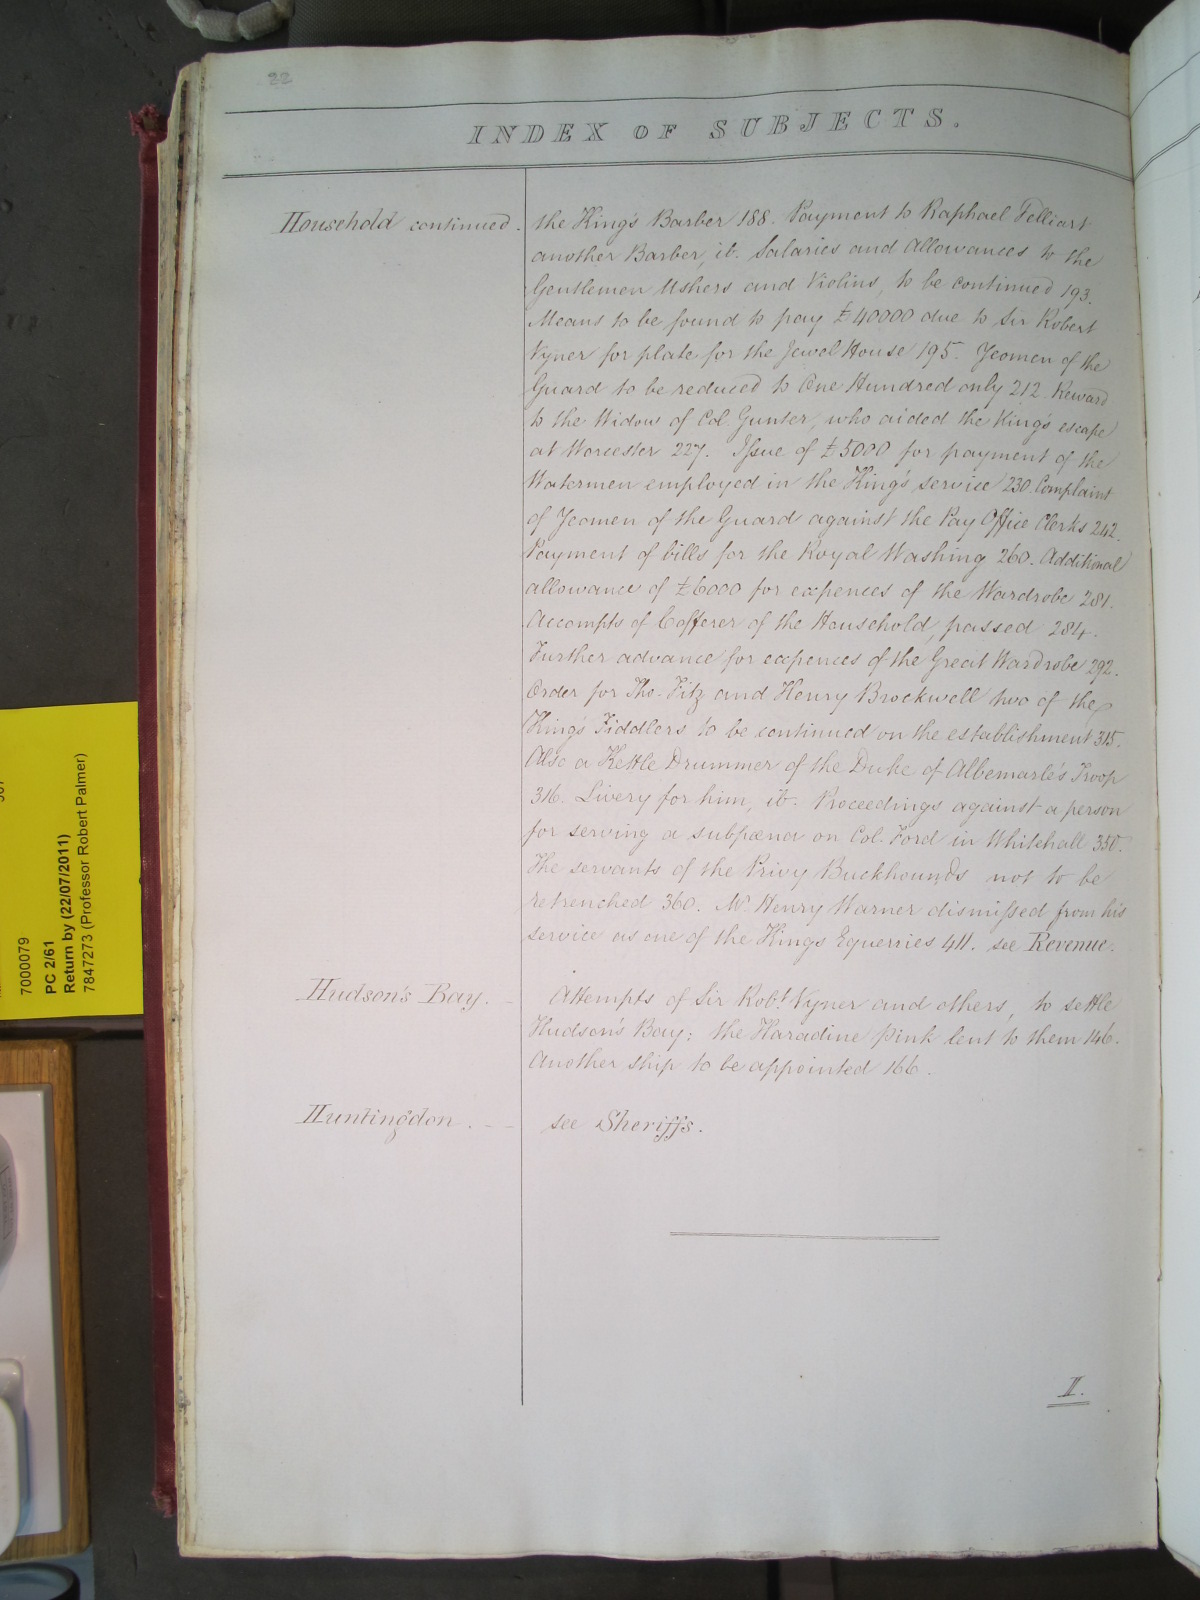 22
INDEX OF SUBJECTS.
Household continued.
the King's Barber 188. Payment to Raphael Felliart
another Barber, ib. Salaries and Allowances to the
Gentlemen Ushers and Violins, to be continued 193.
Means to be found to pay £40000 due to Sir Robert
Vyner for plate for the Jewel House 195. Yeomen of the
Guard to be reduced to One Hundred only 212. Reward
to the Widow of Col. Gunter, who aided the King's escape
at Worcester 227. Issue of £5000 for payment of the
Watermen employed in the King's service 230. Complaint
of Yeomen of the Guard against the Pay Office Clerks 242.
Payment of bills for the Royal Washing 260. Additional
allowance of £6000 for expences of the Wardrobe 281.
Accompts of Cofferer of the Household, passed 284.
Further advance for expences of the Great Wardrobe 292.
Order for Tho. Fitz and Henry Brockwell two of the
King's Fiddlers to be continued on the establishment 315.
Also a Kettle Drummer of the Duke of Albemarle's Troop
316. Livery for him, ib. Proceedings against a person
for serving a subpæna on Col. Ford in Whitehall 350.
The servants of the Privy Buckhounds not to be
retrenched 360. Mr. Henry Warner dismissed from his
service as one of the Kings Equerries 411. see Revenue.
Hudson's Bay. -
Attempts of Sir Robt. Vyner and others, to settle
Hudson's Bay; the Haradine pink lent to them 146.
Another ship to be appointed 166.
Huntingdon. - -
see Sheriffs.
I.
7000079
PC 2/61
Return by (22/07/2011)
7847273 (Professor Robert Palmer)